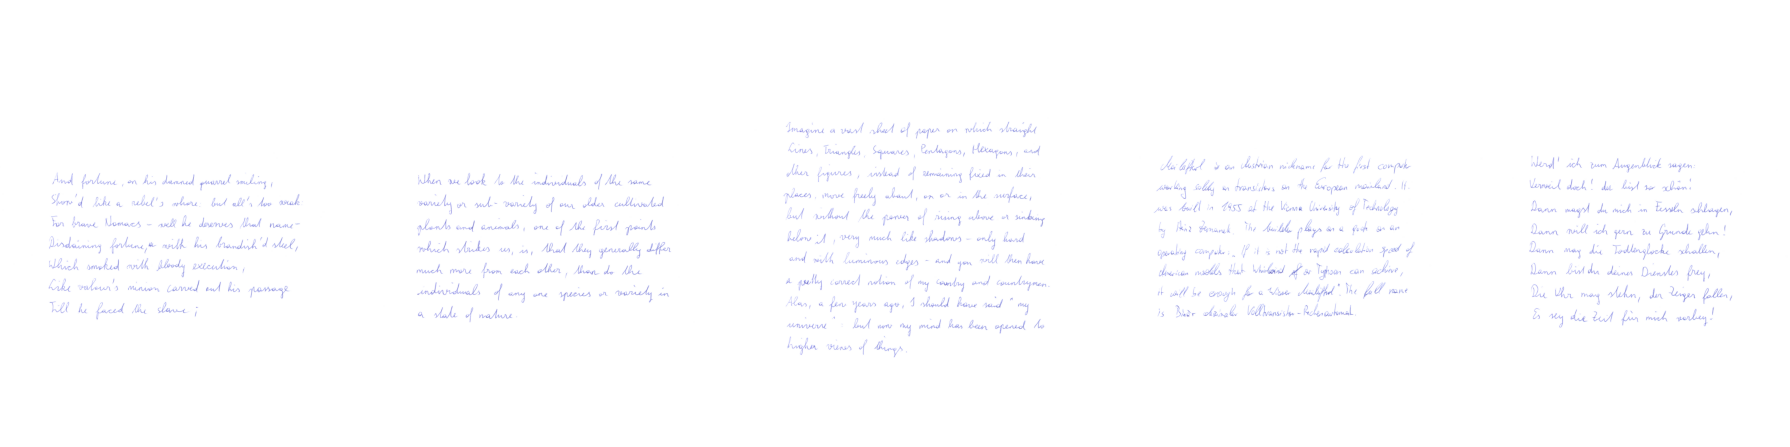 And fortune, on his damned quarrel smiling,
Show'd like a rebel's whore: but all's too weak
For brave Nomacs - well he deserves that name-
Disdaining fortune, with his brandish'd steel,
Which smoked with bloody execution,
Like valour's minion carved out his passage
Till he faced the slave;
When we look to the individuals of the same
variety or sub-variety of our older cultivated
plants and animals, one of the first points
which strikes us, is, that they generally differ
much more from each other, than do the
individuals of any one species or variety in
a state of nature.
Imagine a vast sheet of paper on which straight
Lines, Triangles, Squares, Pentagons, Hexagons, and
other figures, instead of remaining fixed in their
places, move freely about, on or in the surface,
but without the power of rising above or sinking
below it, very much like shadows - only hard
and with luminous edges - and you will then have
a pretty correct notion of my country and countrymen.
Alas, a few years ago, I should have said "my
universe": but now my mind has been opened to
higher views of things.
Mailüfterl is an Austrian nickname for the first computer
working solely on transistors on the European mainland. It
was built in 1955 at the Vienna University of Technology
by Heinz Zemanek. The builder plays on a quote on an
operating computer. If it is not the rapid calculation speed of
American models that Whirlwind or Typhoon can achieve,
it will be enough for a Wiener Mailüfterl". The full name
is Binär dezimaler Volltransistor-Rechenautomat.
Werd' ich zum Augenblick sagen:
Verweil doch! du bist so schön!
Dann magst du mich in Fesseln schlagen,
Dann will ich gern zu Grunde gehn!
Dann mag die Todtenglocke schallen,
Dann bist du deines Dienstes frey,
Die Uhr mag stehn, der Zeiger fallen,
Es sey die Zeit für mich vorbey!